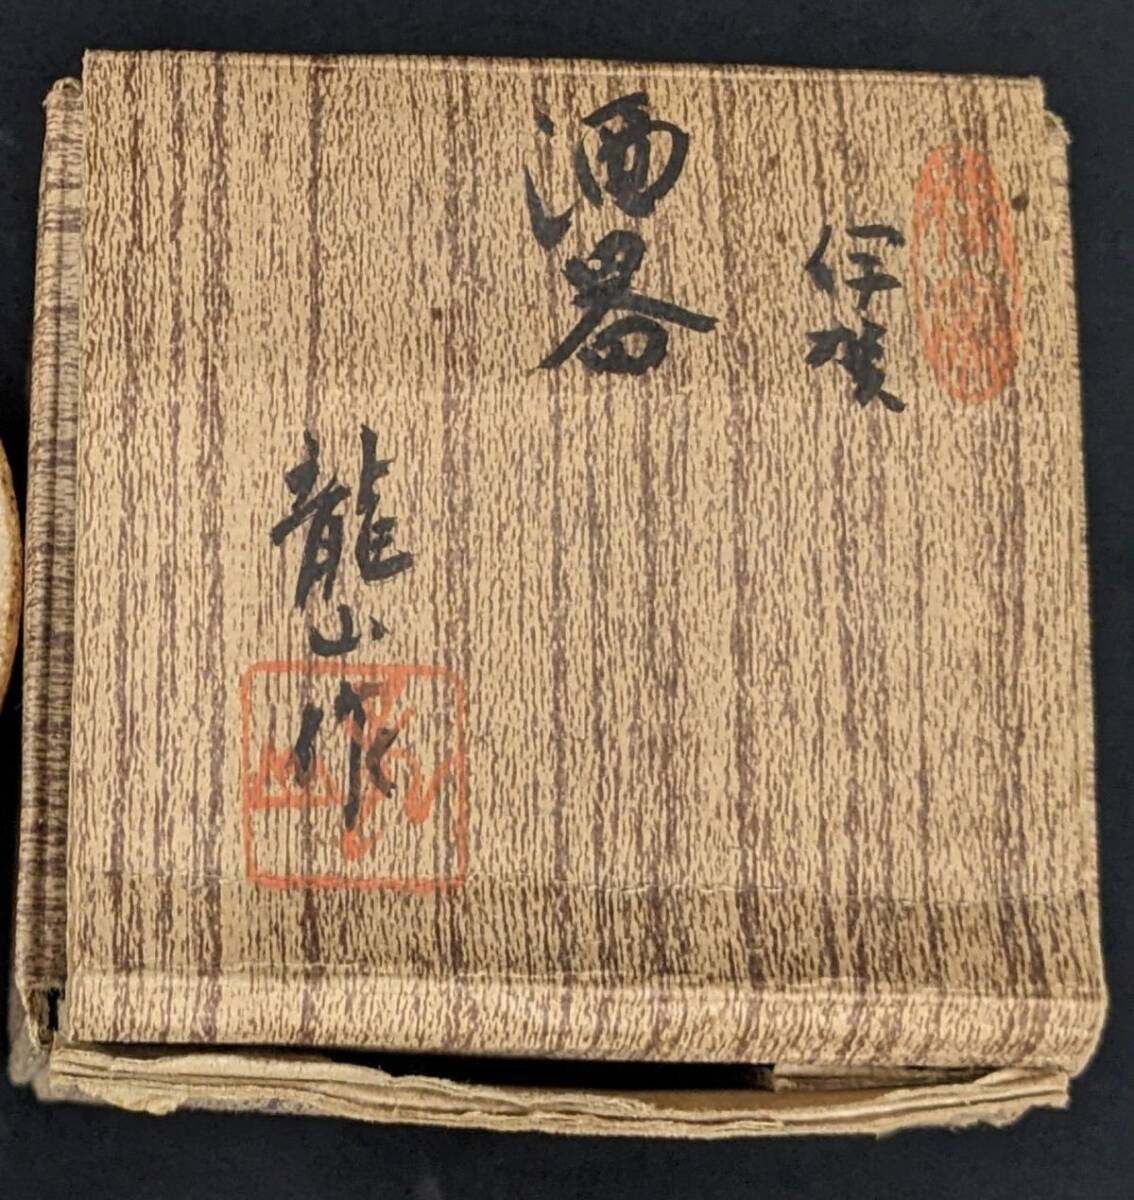 伊賀
酒器
龍山作